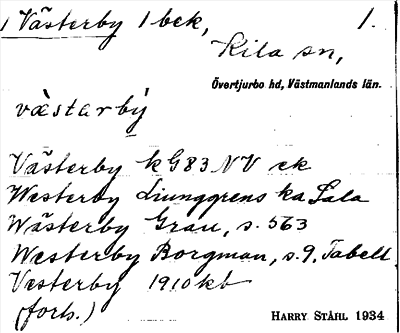 Västerby 1 bek,
1.
Kila sn,
Övertjurbo hd, Västmanlands län.
västarby
Västerby k G83 NV ek
Westerby Liunggrens ka Sala
Wästerby Grau, s. 563
Westerby Borgman, s. 9, Tabell
Vesterby 1910 kb
(forts.)
HARRY STÅHL 1934